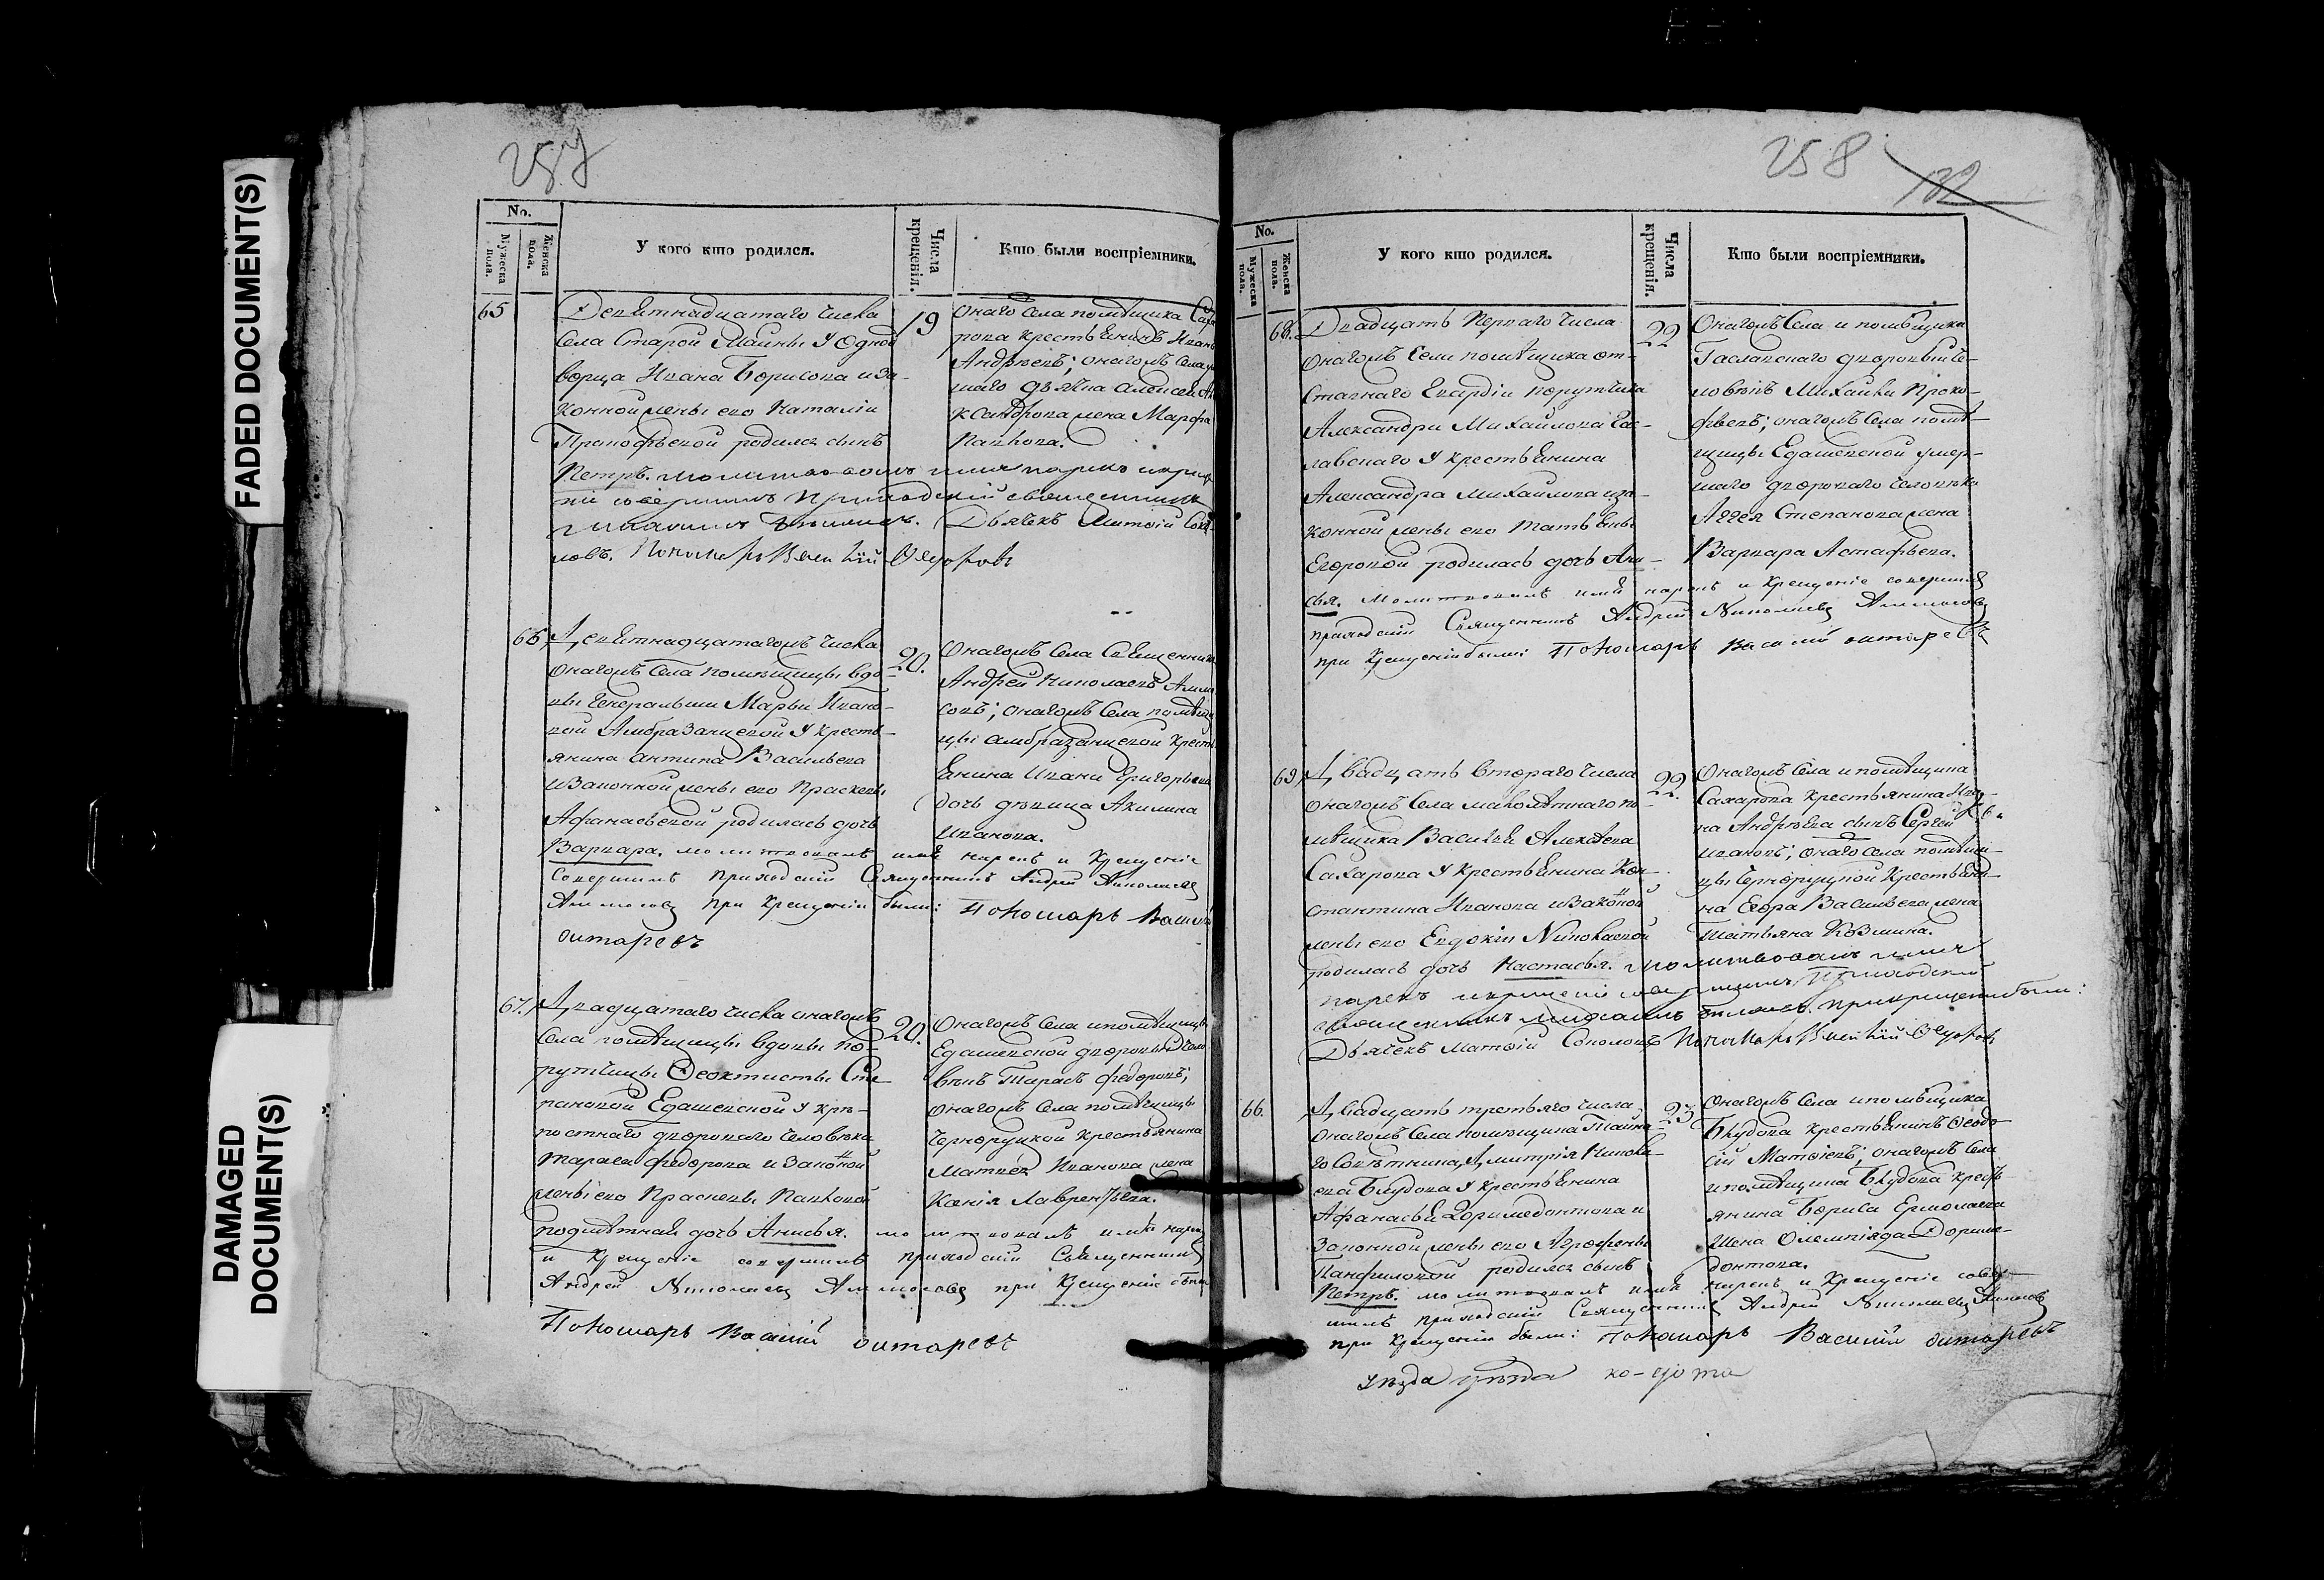 FADED DOCUMENT(S)
DAMAGED
DOCUMENT(S)
257
No.
Мужеска пола.
Женска пола.
У кого кто родился.
Числа крещенія.
Кто были воспріемники.
65
Девятнадцатаго числа
села Старой Майны у однод
ворца Ивана Борисова и за-
конной жены его Наталіи
Прокофьевой родился сынъ
Петръ. молитвовалъ имя нарекъ и крещ
ніе совершилъ приходскій священникъ
Дьячекъ Матѳій Соко-
ловъ. Пономарь Василій Ѳедоровъ
19
Онаго села помѣщика Саха
рова крестьянинъ Иванъ
Андрѣевъ; онагожъ села
шаго дьячка Алексѣя Але
ксандрова жена Марфа
Павлова.
66
Девятнадцатагожъ числа
онагожъ села помѣщицы вдо-
вы генеральши Марьи Ивано-
вой Амбразанцевой у кресть-
янина Антипа Васильева
и законной жены его Прасковьи
Афанасьевой родилась дочь
Варвара. молитвовалъ имя нарекъ и крещеніе
совершилъ приходскій священникъ Андрей Николаевъ
Аммосовъ при крещеніи были: Пономарь Василій
октаревъ
20.
Онагожъ села священникъ
Андрей Николаевъ Аммо
совъ; онагожъ села помѣщи
цы Амбразанцевой кресть
янина Ивана Григорьева
дочь дѣвица Акилина
Иванова.
67.
Двадцатаго числа онагожъ
села помѣщицы вдовы по-
рутчицы Ѳеоктисты Сте
пановой Едашевской у крѣ-
постнаго двороваго человѣка
Тараса Федорова и законной
жены его Прасковьи Павловой
подметная дочь Анисья. молитвовалъ имя наре
и крещеніе совершилъ приходскій священникъ
Андрей Николаевъ Аммосовъ при крещеніи были
Пономарь Василій октаревъ
20.
Онагожъ села и помѣщицы
Едашевской дворовый чело
вѣкъ Тарасъ Федоровъ;
онагожъ села помѣщицы
Черноруцкой крестьянина
Матвея Иванова жена
Ксенія Лаврентьева.
258
132
No.
Мужеска пола.
Женска пола.
У кого кто родился.
Числа крещенія.
Кто были воспріемники.
68.
Двадцать перваго числа
онагожъ села помѣщика от-
ставнаго гвардіи порутчика
Александра Михайлова Гас-
лавскаго у крестьянина
Александра Михайлова и за-
конной жены его Татьяны
Егоровой родилась дочь Ани-
сья. молитвовалъ имя нарекъ и крещеніе совершилъ
приходскій священникъ Андрей Николаевъ Аммосовъ
при крещеніи были: Пономарь Василій октаревъ
22
Онагожъ села и помѣщика
Гаславскаго дворовый че-
ловѣкъ Михайла Проко-
фьевъ; онагожъ села помѣ-
щицы Едашевской умер-
шаго двороваго человѣка
Аггея Степанова жена
Варвара Астафьева.
69
Двадцать втораго числа
онагожъ села малолѣтнаго по-
мѣщика Василья Алексѣева
Сахарова у крестьянина Кон-
стантина Иванова и законой
жены его Евдокіи Николаевой
родилась дочь Настасья. молитвовалъ имя
нарекъ и крещеніе совершилъ приходскій
священникъ при крещеніи были:
Дьячекъ Матѳій Соколовъ Пономарь Василій Ѳедоровъ
22.
Онагожъ села и помѣщика
Сахарова крестьянина Ива-
на Андрѣева сынъ Сергей
Ивановъ; онаго села помѣщи-
цы Черноруцкой крестьяни-
на Егора Васильева жена
Татьяна Козмина.
66.
Двадцать третьяго числа
онагожъ села помѣщика Тайна-
го Совѣтника Дмитрія Никола-
ева Блудова у крестьянина
Афанасья Доримедонтова и
законной жены его Агрофены
Панфиловой родился сынъ
Петръ. молитвовалъ имя нарекъ и крещеніе совер-
шилъ приходскій священникъ Андрей Николаевъ Аммосовъ
при крещеніи были: Пономарь Василій октаревъ
23
Онагожъ села и помѣщика
Блудова крестьянинъ Ѳеодо-
сій Матѳіевъ; онагожъ села
и помѣщика Блудова кресть
янина Бориса Ермолаева
жена Олемпіяда Дориме-
донтова.
уѣзда